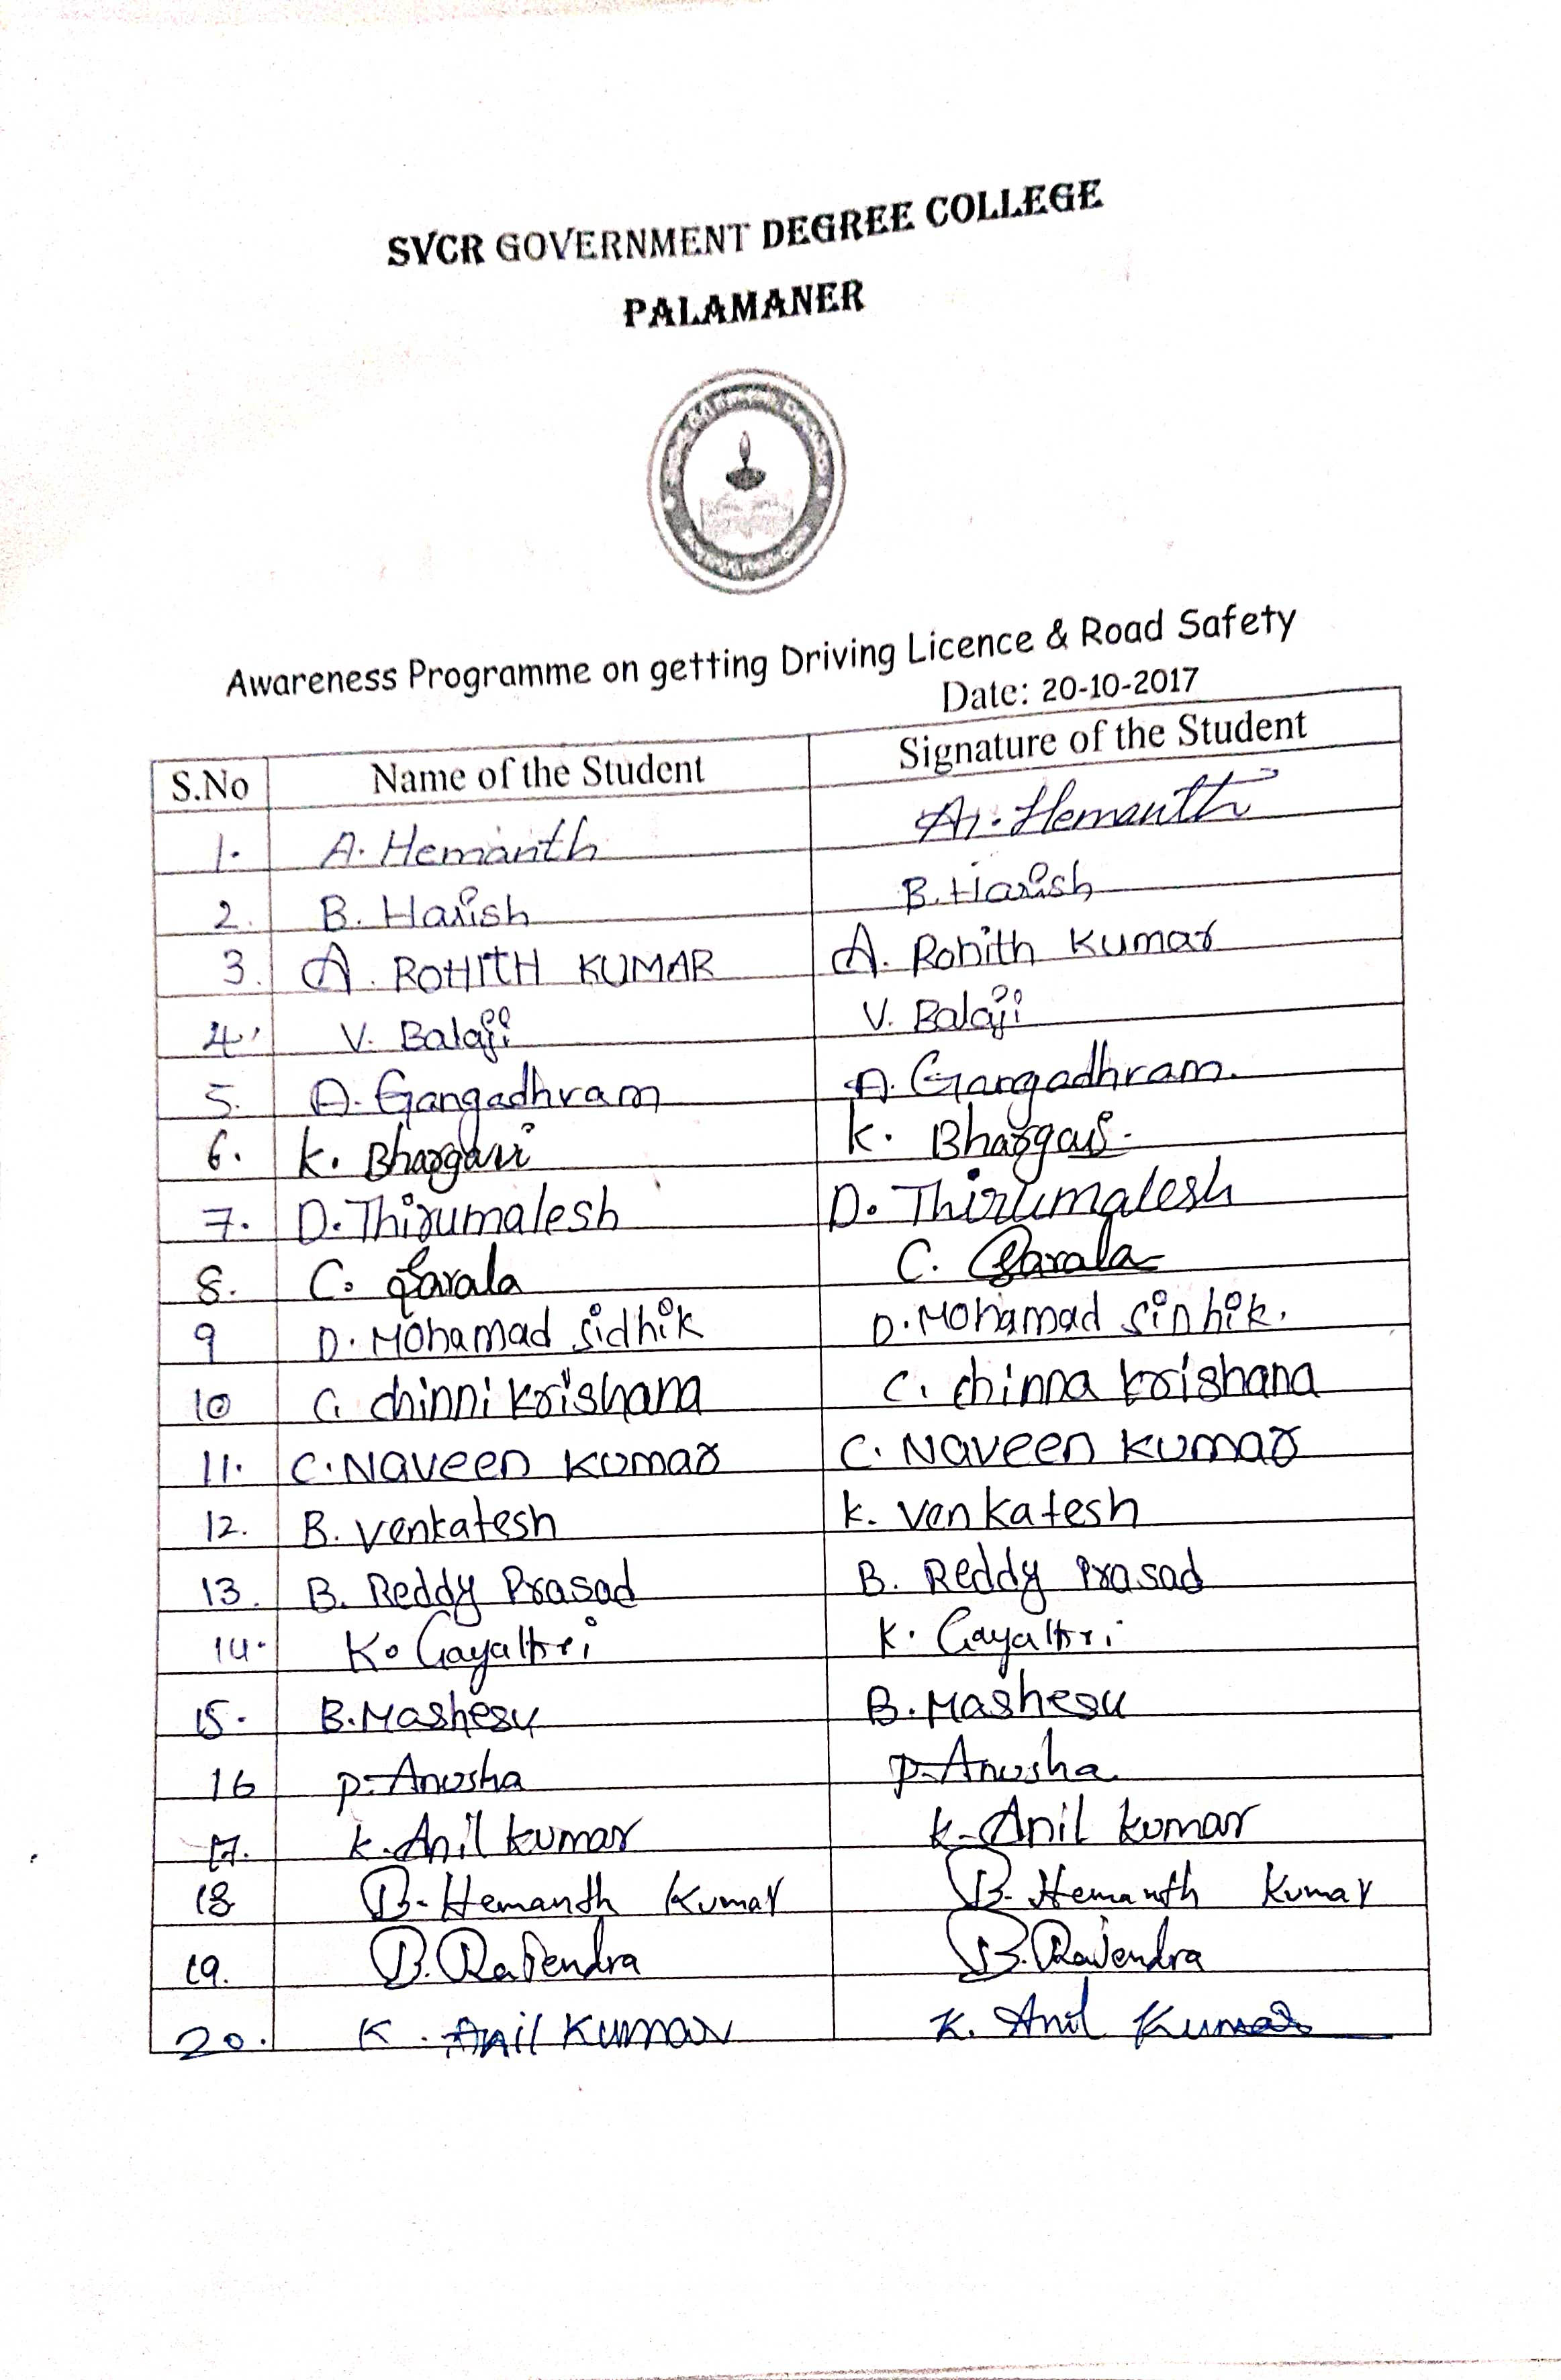 SVCR GOVERNMENT DEGREE COLLEGE
PALAMANER
Awareness Programme on getting Driving Licence & Road Safety
Date: 20-10-2017
S.No Name of the Student Signature of the Student
1. A. Hemanth A. Hemanth
2. B. Harish B. Harish
3. A. ROHITH KUMAR A. Rohith Kumar
4. V. Balaji V. Balaji
5. A. Gangadhram A. Gangadhram.
6. K. Bhargavi K. Bhargavi
7. D. Thirumalesh D. Thirumalesh
8. C. Sarala C. Sarala
9 D. Mohamad Sidhik D. Mohamad Sinhik.
10 C. chinni krishana C. chinna krishana
11. C. Naveen Kumar C. Naveen Kumar
12. B. Venkatesh K. Venkatesh
13. B. Reddy Prasad B. Reddy Prasad
14. K. Gayathri K. Gayathri
15. B. Mashesu B. Mashesu
16 P. Anusha P. Anusha
17. K. Anil kumar K. Anil kumar
18 B. Hemanth Kumar B. Hemanth Kumar
19. B. Rajendra B. Rajendra
20. K. Anil Kumar K. Anil Kumar